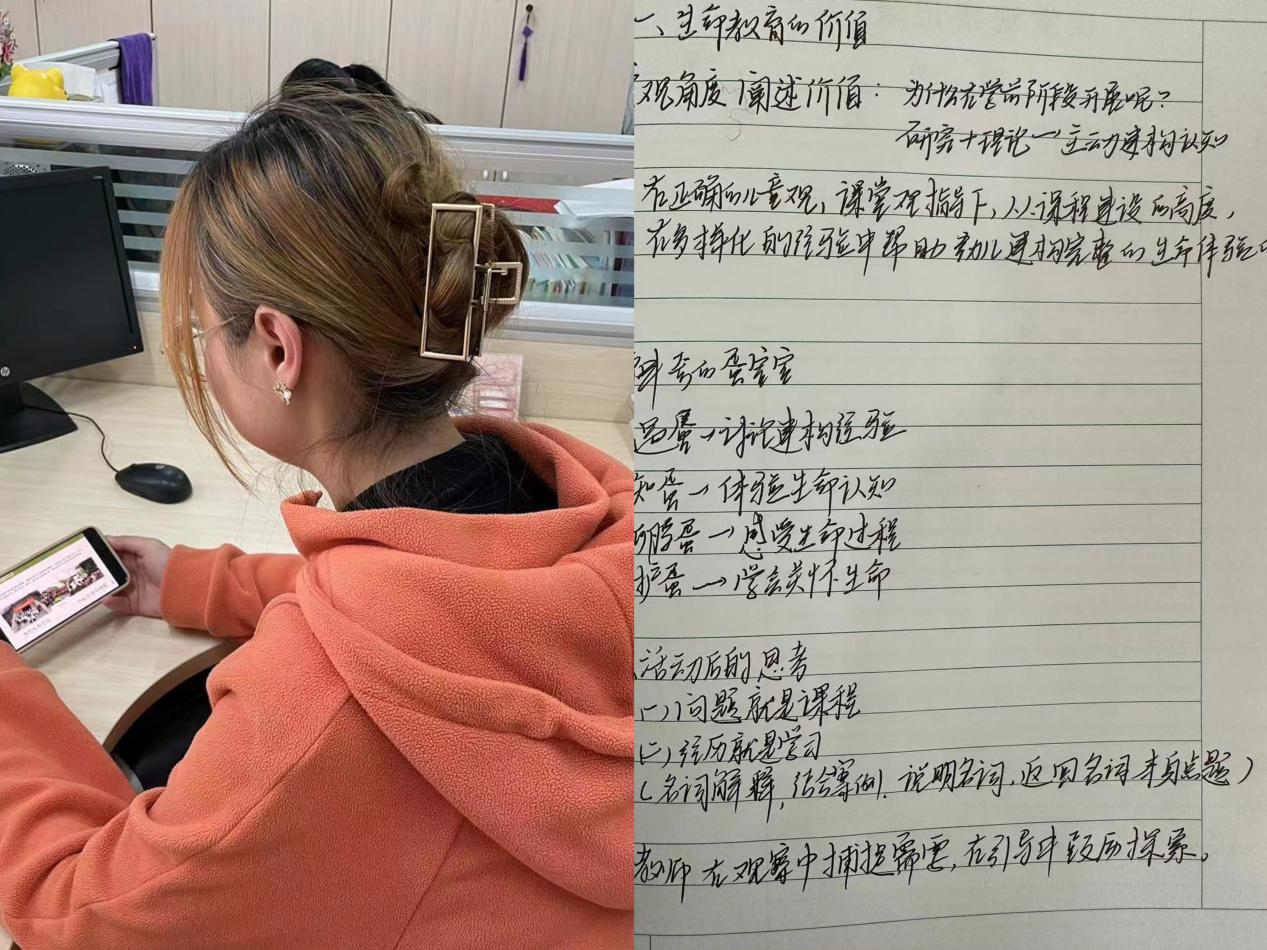 一、生命教育的价值
观角度阐述价值：为什么在学前阶段开展呢？
研究+理论→主动建构认知
在正确的儿童观、课堂观指导下，从课程建设的高度，
在多样化的经验中帮助幼儿建构完整的生命体验
奇的蛋宝宝
蛋→讨论建构经验
知蛋→体验生命认知
孵蛋→感受生命过程
护蛋→学会关怀生命
活动后的思考
(一)问题就是课程
(二)经历就是学习
(名词解释，结合案例，说明名词，返回名词本身点题)
教师在观察中捕捉需要，在引导中鼓励探索。
hp